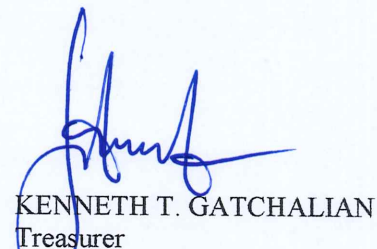 KENNETH T. GATCHALIAN
Treasurer